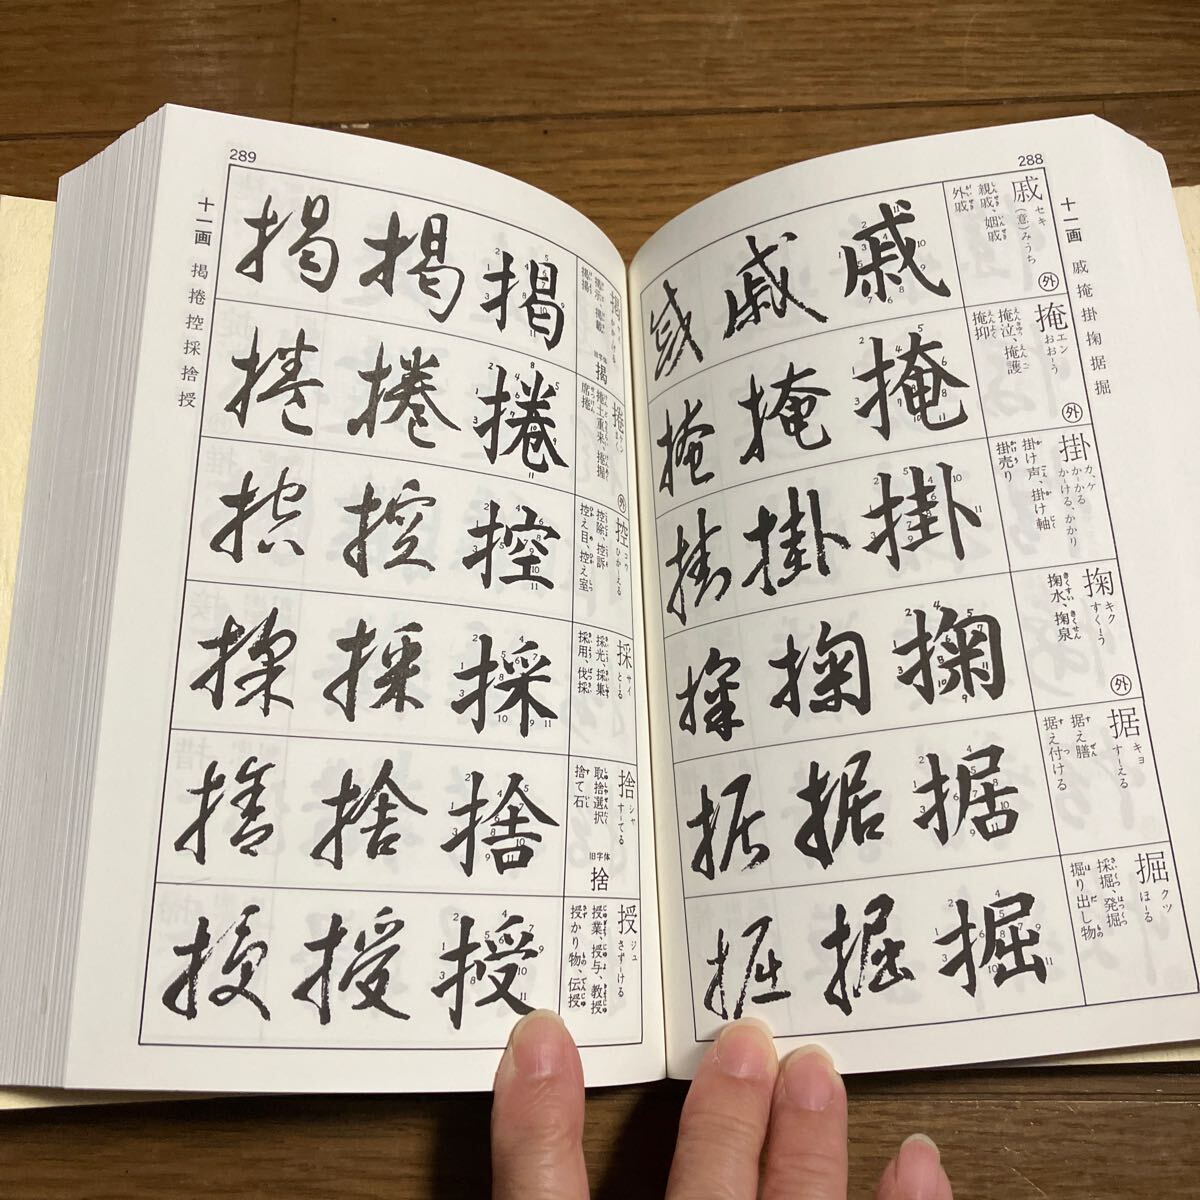 288
十一画 戚 掩 掛 掬 据 掘
戚 セキ (意)みうち 外
親戚、姻戚
外戚
戚 戚 戚
掩 エン おお-う 外
掩泣、掩護
掩抑
掩 掩 掩
掛 カ、ケ かかる かける、かかり
掛け声、掛け軸
掛売り
掛 掛 掛
掬 キク すく-う 外
掬水、掬泉
掬 掬 掬
据 キョ す-える
据え膳
据え付ける
据 据 据
掘 クツ ほ-る
採掘、発掘
掘り出し物
掘 掘 掘
289
十一画 掲 捲 控 採 捨 授
掲 かかげる
掲示、掲載
旧字体 揭
掲 掲 掲
捲 ケン まく 外
捲土重来、捲握
席捲
捲 捲 捲
控 コウ ひか-える
控除、控訴
控え目、控え室
控 控 控
採 サイ と-る
採光、採集
採用、伐採
採 採 採
捨 シャ す-てる
取捨選択
捨て石
旧字体 捨
捨 捨 捨
授 ジュ さず-ける
授業、授与、教授
授かり物、伝授
授 授 授